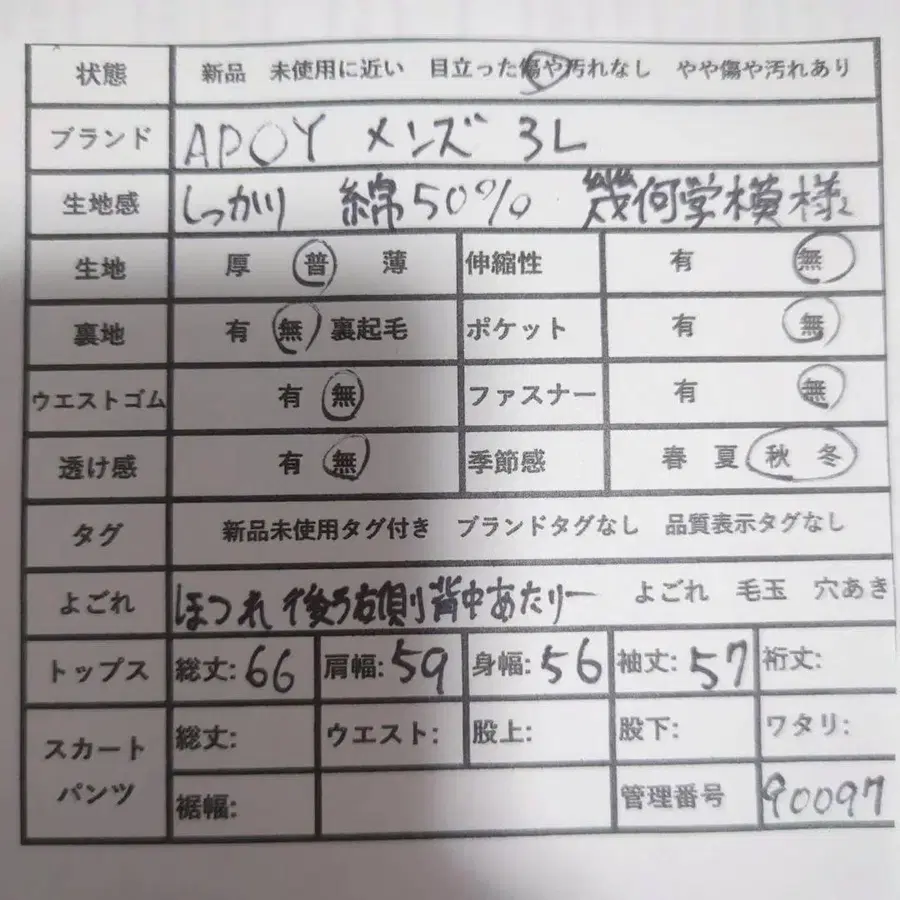 状態 新品 未使用に近い 目立った傷や汚れなし やや傷や汚れあり
ブランド APOY メンズ 3L
生地感 しっかり 綿50% 幾何学模様
生地 厚 普 薄 伸縮性 有 無
裏地 有 無 裏起毛 ポケット 有 無
ウエストゴム 有 無 ファスナー 有 無
透け感 有 無 季節感 春 夏 秋 冬
タグ 新品未使用タグ付き ブランドタグなし 品質表示タグなし
よごれ ほつれ 後ろ右側背中あたり一 よごれ 毛玉 穴あき
トップス 総丈: 66 肩幅: 59 身幅: 56 袖丈: 57 裄丈:
スカート パンツ 総丈: ウエスト: 股上: 股下: ワタリ:
裾幅: 管理番号 90097